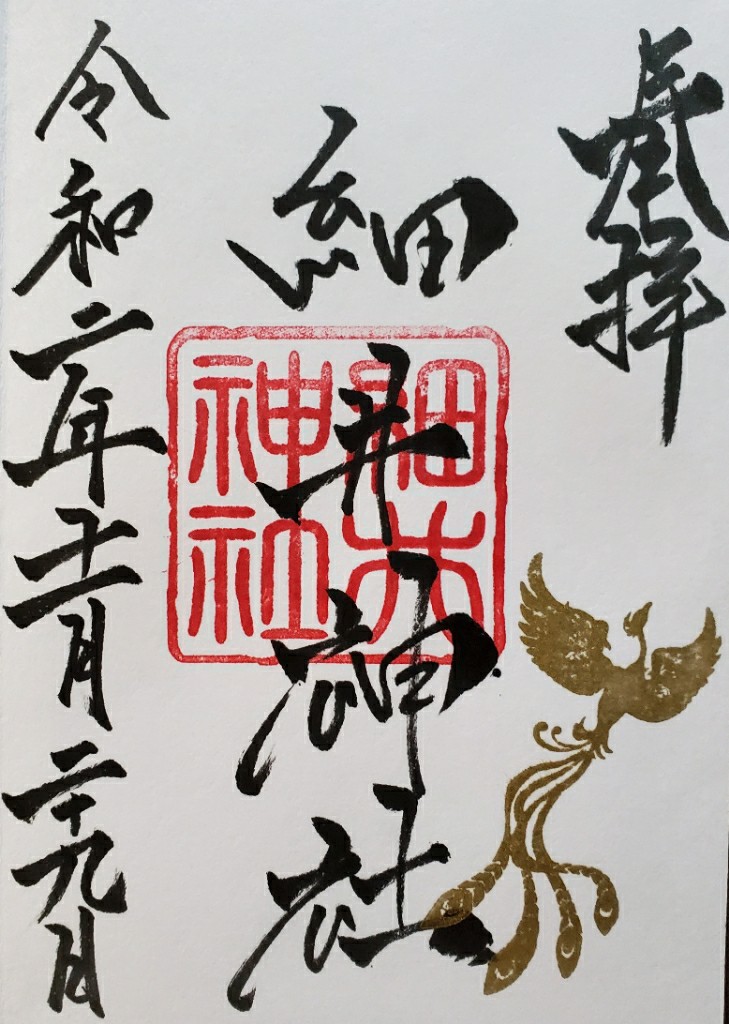 奉拝
細井神社
細井神社
令和二年十一月二十九日